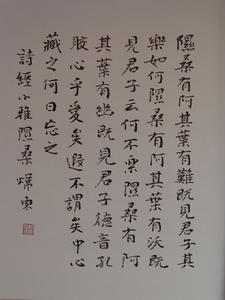 隰桑有阿其葉有難既見君子其
樂如何隰桑有阿其葉有沃既
見君子云何不樂隰桑有阿
其葉有幽既見君子德音孔
膠心乎愛矣遐不謂矣中心
藏之何日忘之
詩經小雅隰桑